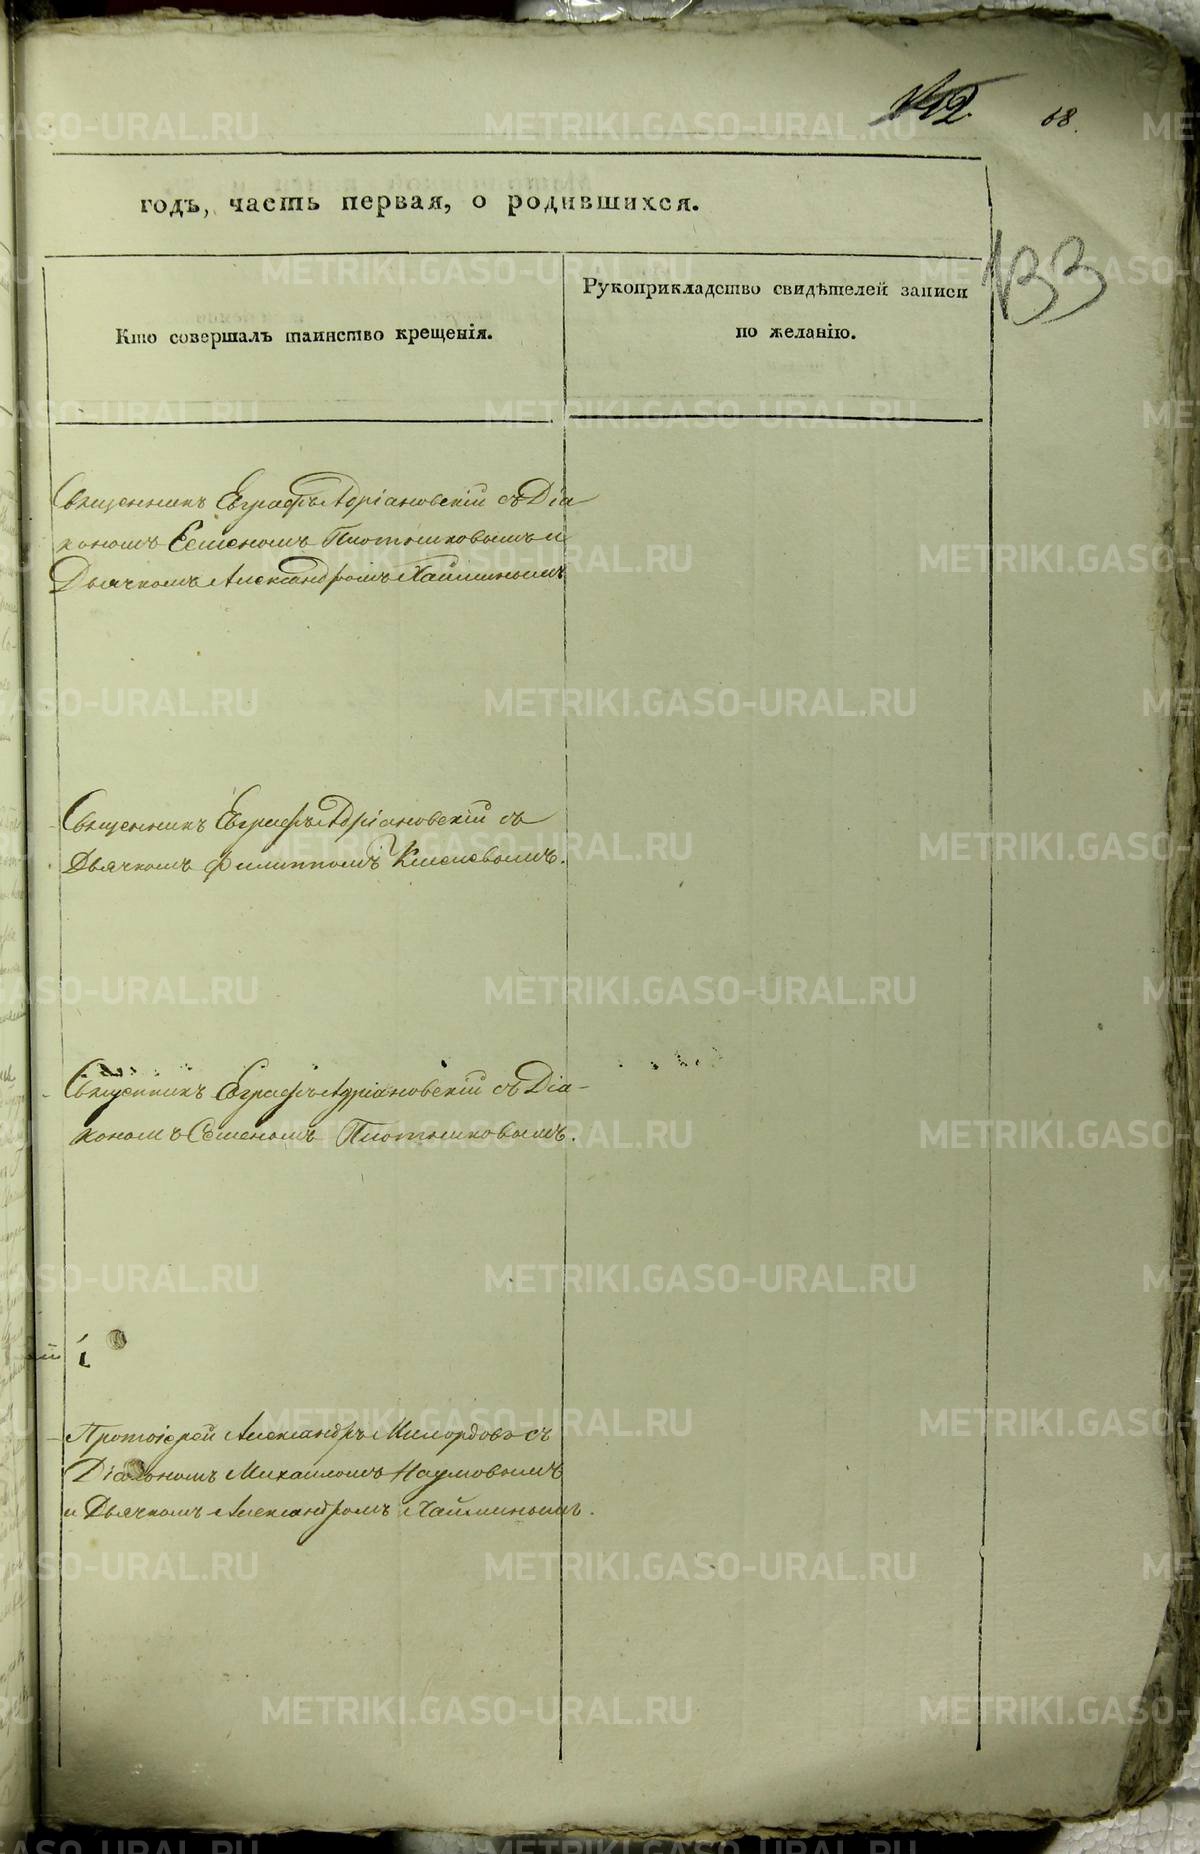 142
68.
годъ, часть первая, о родившихся.
133
Кто совершалъ таинство крещенія.
Рукоприкладство свидѣтелей записи
по желанію.
Священникъ Евграфъ Адріановскій съ Діа
кономъ Семеномъ Плотниковымъ и
Дьячкомъ Александромъ Хайминымъ
Священникъ Евграфъ Адріановскій съ
Дьячкомъ Филиппомъ
Священникъ Евграфъ Адріановскій съ Діа-
кономъ Семеномъ Плотниковымъ.
Протоіерей Александръ Милордовъ съ
Діакономъ Михаиломъ Наумовымъ
и Дьячкомъ Александромъ Хайминымъ.
METRIKI.GASO-URAL.RU